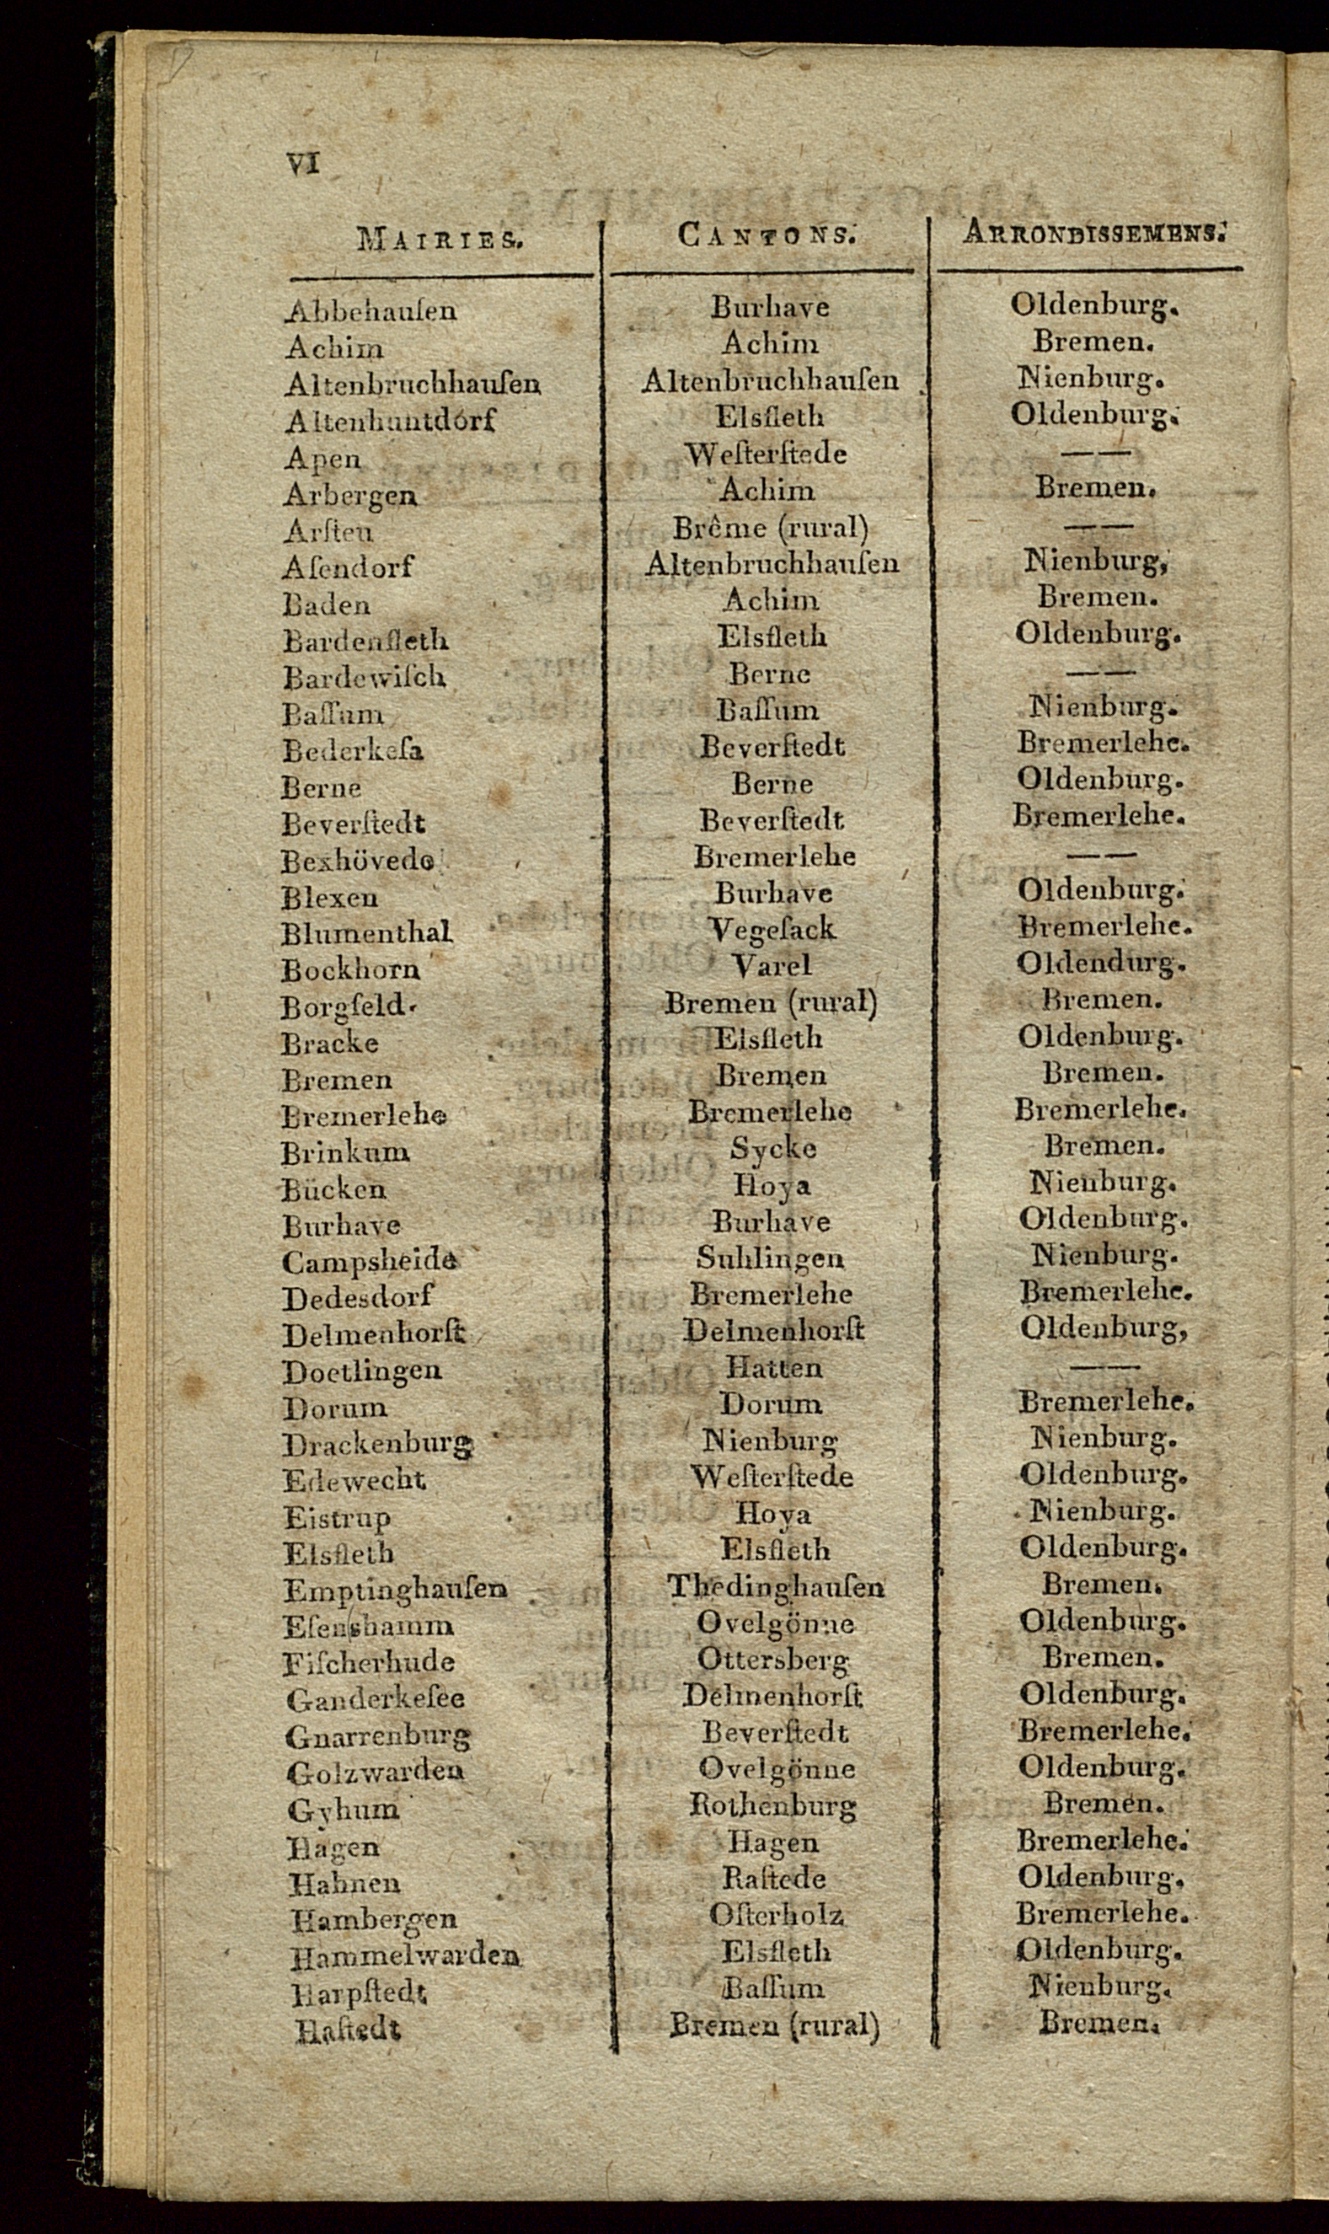 VI
MAIRIES. CANTONS. ARRONDISSEMENS.
Abbehauſen Burhave Oldenburg.
Achim Achim Bremen.
Altenbruchhauſen Altenbruchhauſen Nienburg.
Altenhuntdorf Elsfleth Oldenburg.
Apen Weſterſtede ——
Arbergen Achim Bremen.
Arſten Brême (rural) ——
Aſendorf Altenbruchhauſen Nienburg,
Baden Achim Bremen.
Bardenfleth Elsfleth Oldenburg.
Bardewiſch Berne ——
Baſſum Baſſum Nienburg.
Bederkeſa Beverſtedt Bremerlehe.
Berne Berne Oldenburg.
Beverſtedt Beverſtedt Bremerlehe.
Bexhövede Bremerlehe ——
Blexen Burhave Oldenburg.
Blumenthal Vegeſack Bremerlehe.
Bockhorn Varel Oldendurg.
Borgfeld. Bremen (rural) Bremen.
Bracke Elsfleth Oldenburg.
Bremen Bremen Bremen.
Bremerlehe Bremerlehe Bremerlehe.
Brinkum Sycke Bremen.
Bücken Hoya Nienburg.
Burhave Burhave Oldenburg.
Campsheide Suhlingen Nienburg.
Dedesdorf Bremerlehe Bremerlehe.
Delmenhorſt Delmenhorſt Oldenburg,
Doetlingen Hatten ——
Dorum Dorum Bremerlehe.
Drackenburg Nienburg Nienburg.
Edewecht Weſterſtede Oldenburg.
Eistrup Hoya Nienburg.
Elsfleth Elsfleth Oldenburg.
Emptinghauſen Thedinghauſen Bremen.
Eſenshamm Ovelgönne Oldenburg.
Fiſcherhude Ottersberg Bremen.
Ganderkeſee Delmenhorſt Oldenburg.
Gnarrenburg Beverſtedt Bremerlehe.
Golzwarden Ovelgönne Oldenburg.
Gyhum Rothenburg Bremen.
Hagen Hagen Bremerlehe.
Hahnen Raſtede Oldenburg.
Hambergen Oſterholz Bremerlehe.
Hammelwarden Elsfleth Oldenburg.
Harpſtedt Baſſum Nienburg.
Haſtedt Bremen (rural) Bremen.